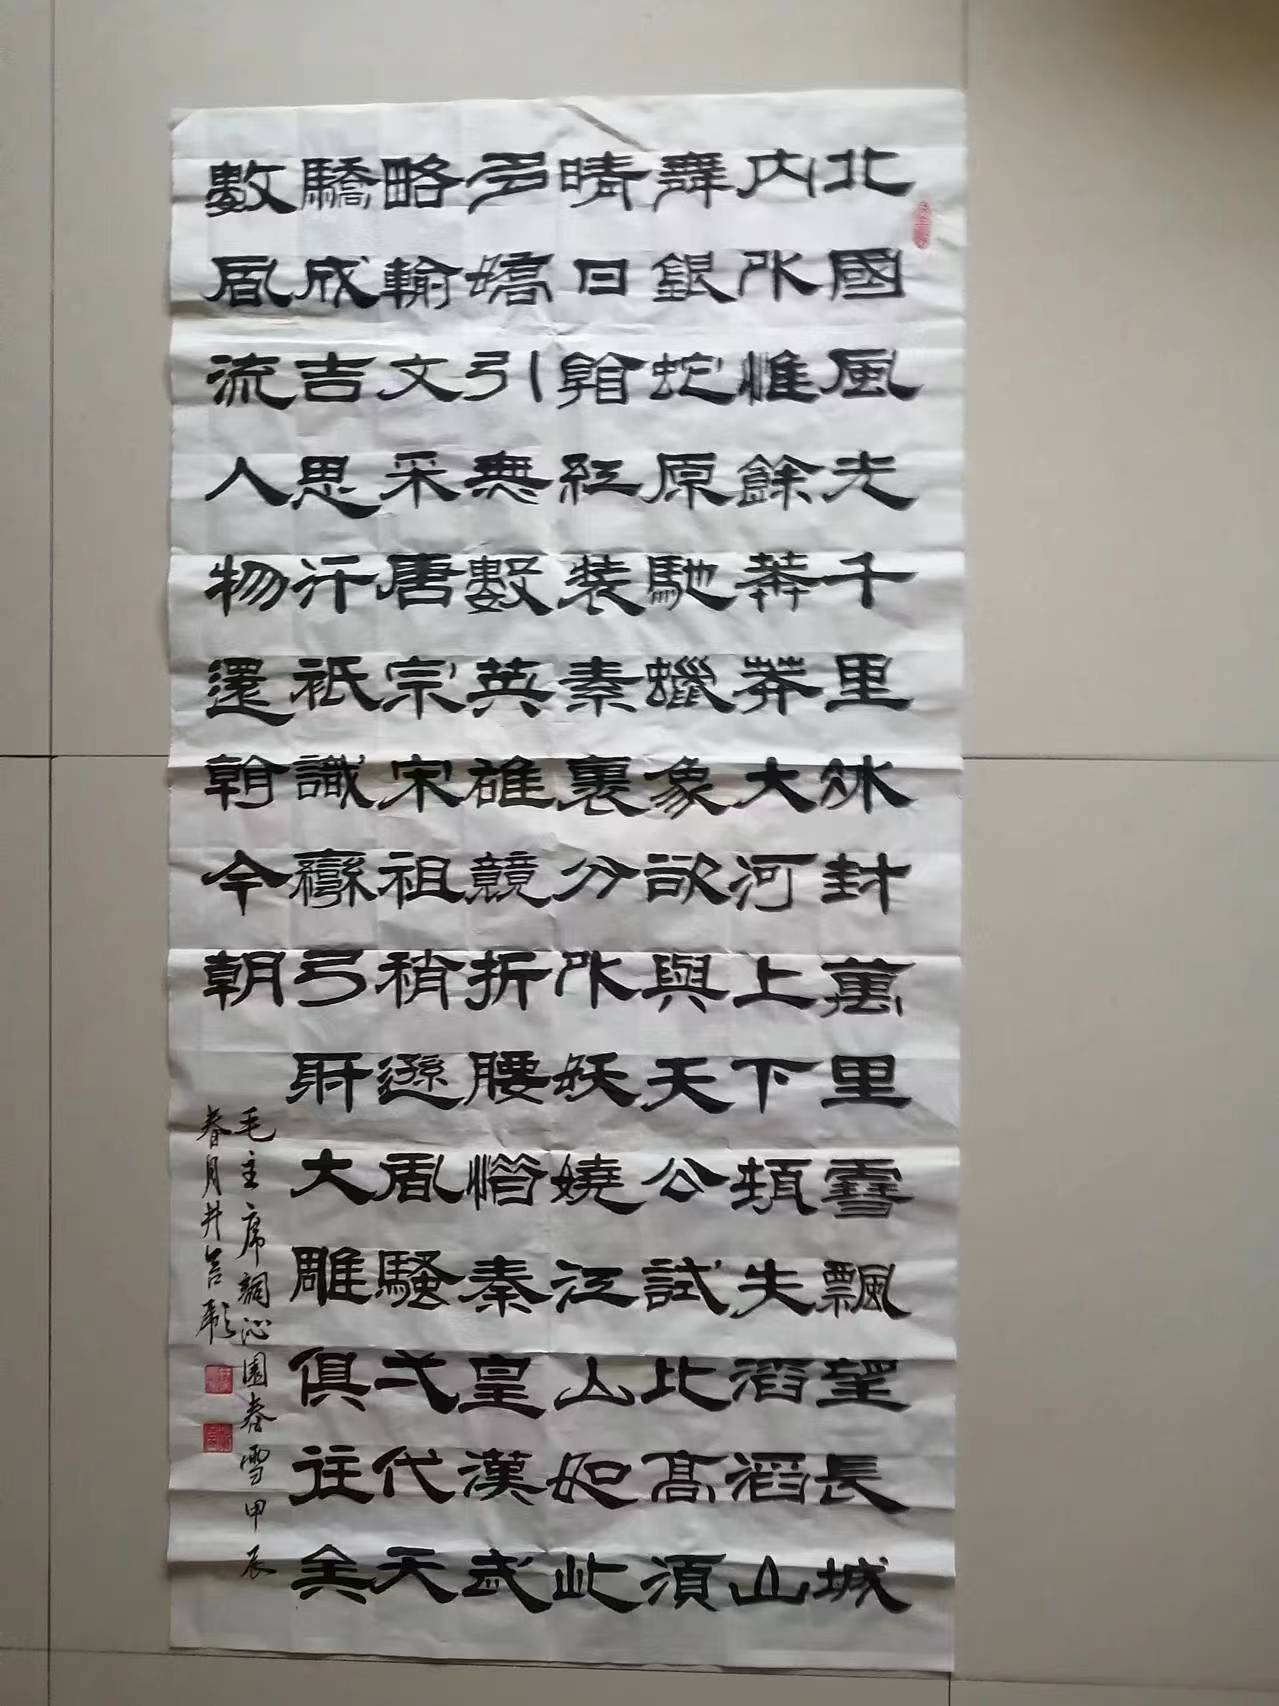 北國風光千里冰封萬里雪飄望長城
内外惟餘莽莽大河上下頓失滔滔山
舞銀蛇原馳蠟象欲與天公試比高須
晴日看紅裝素裹分外妖嬈江山如此
多嬌引無數英雄競折腰惜秦皇漢武
略輸文采唐宗宋祖稍遜風騷弌代天
驕成吉思汗祇識彎弓射大雕俱往矣
數風流人物還看今朝
毛主席詞沁園春雪甲辰
春月井